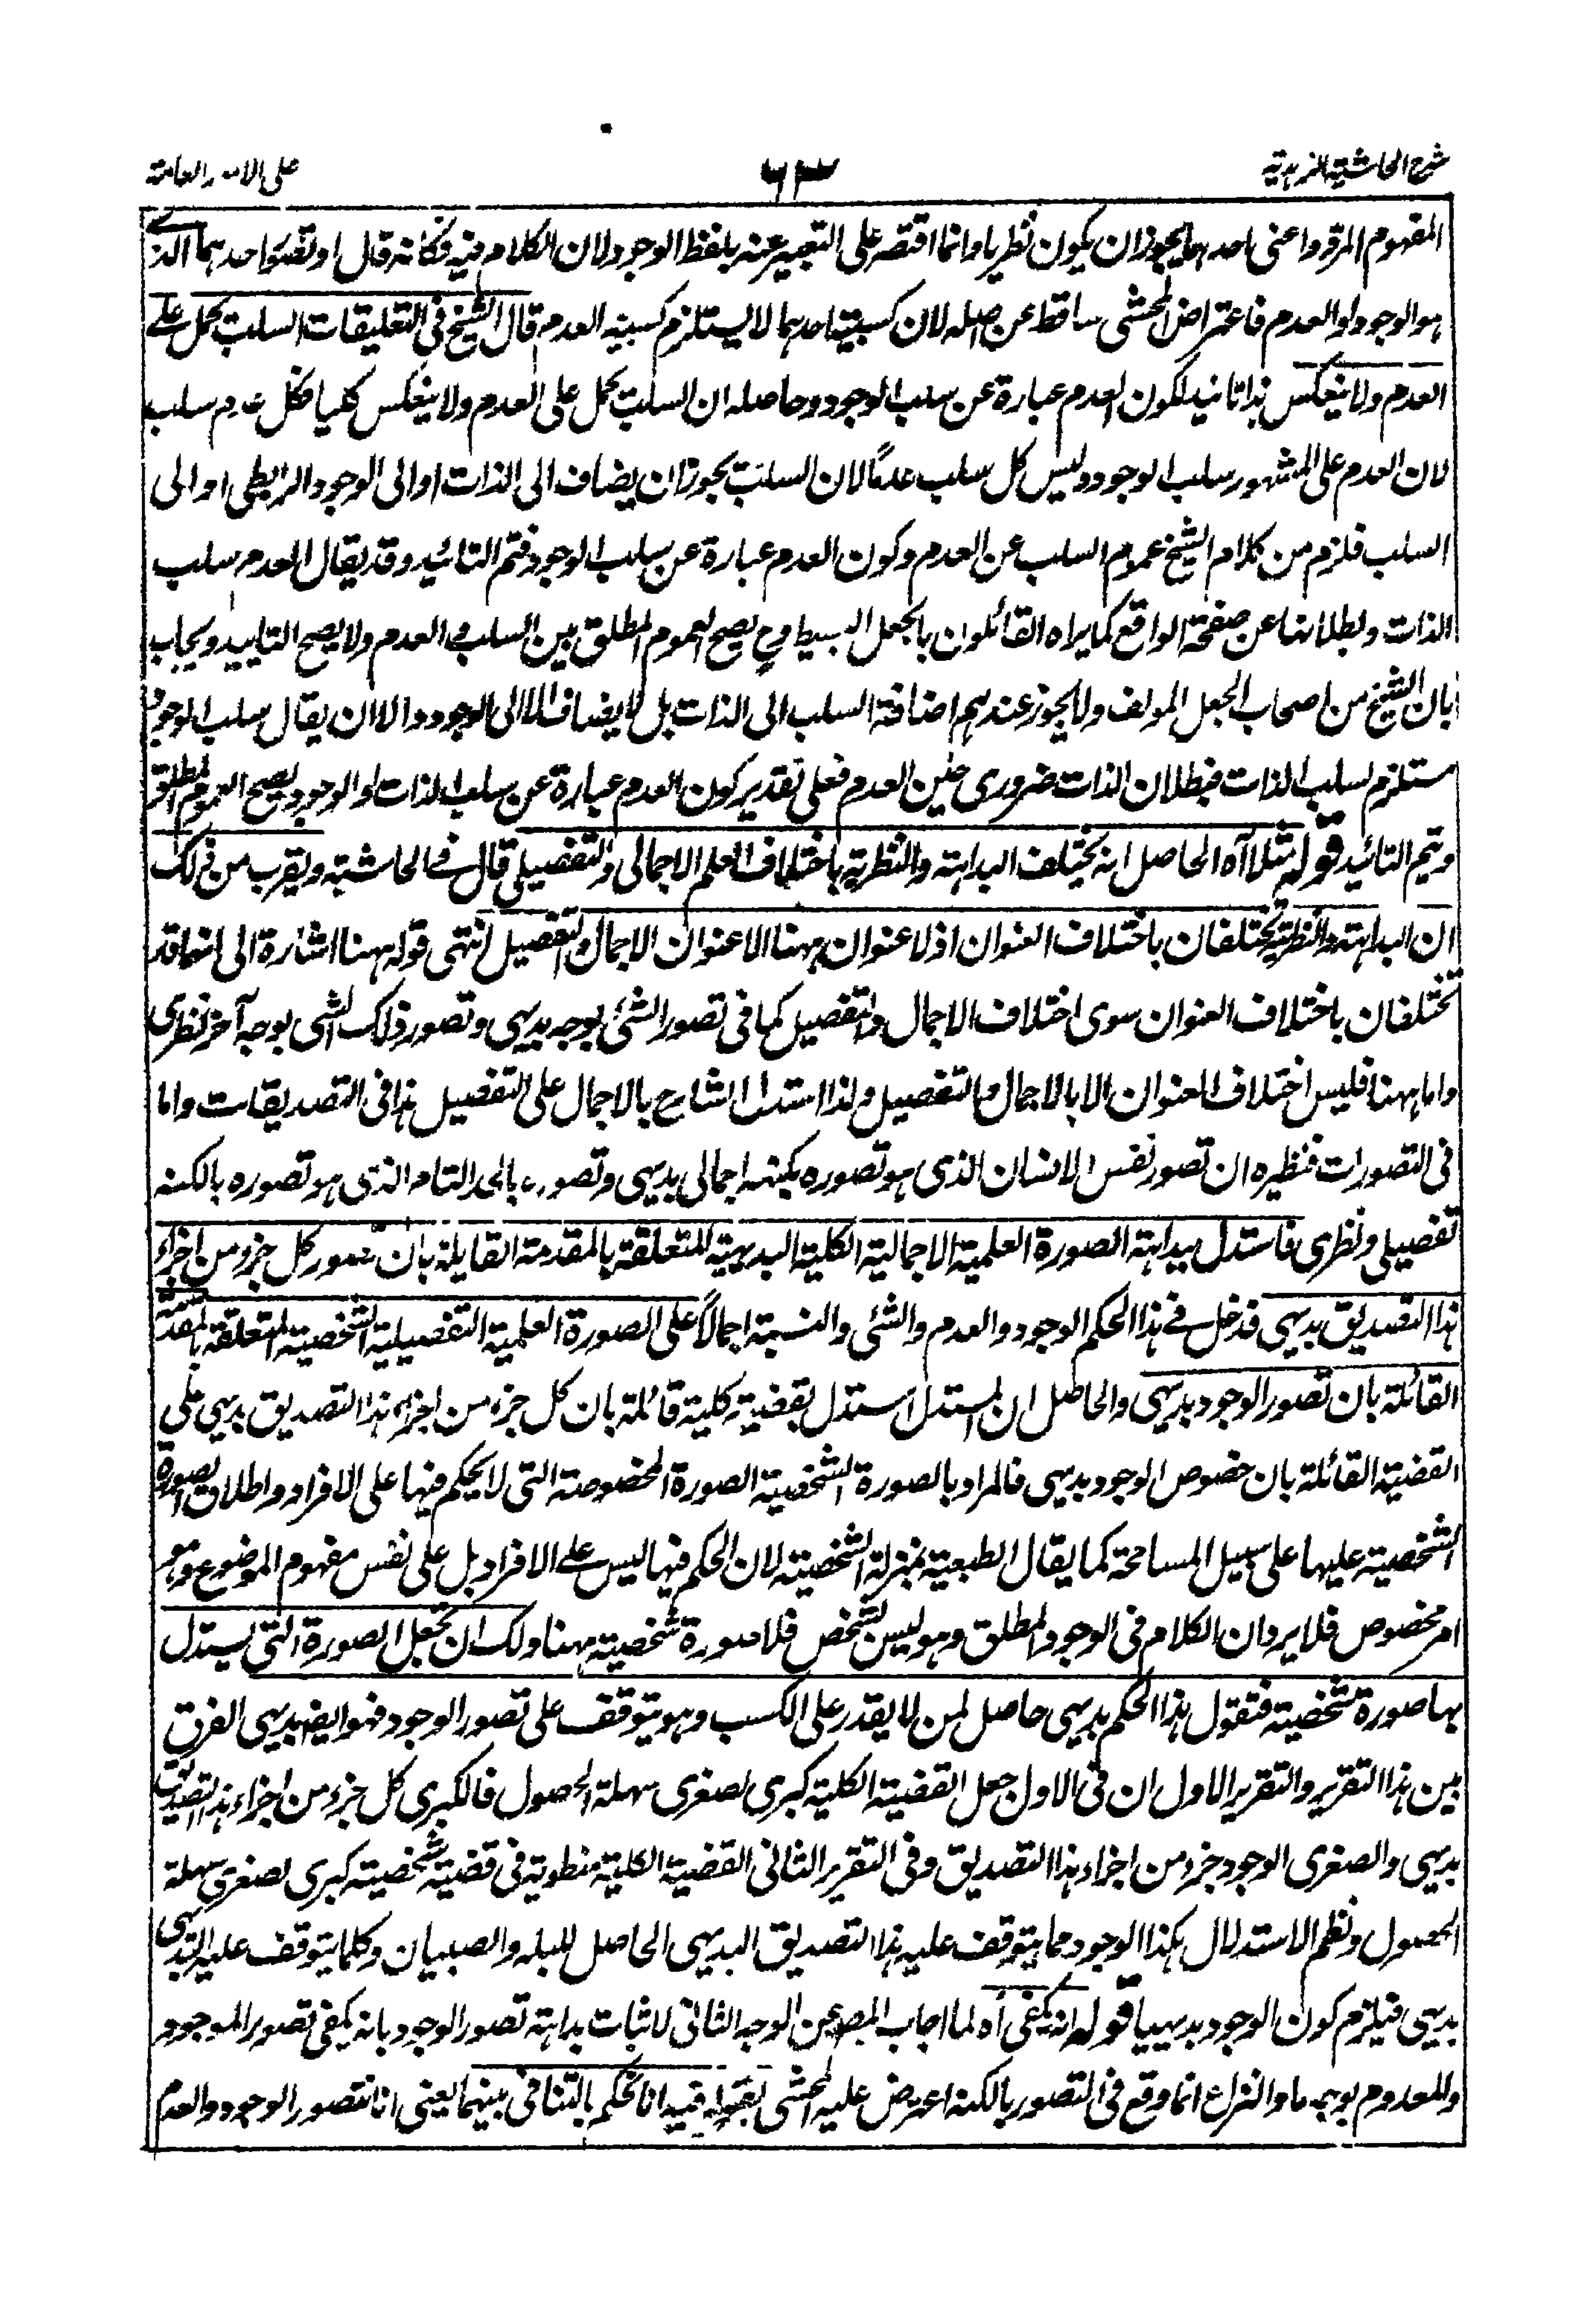 شرح الحاشیة الزاهدیة
٦٣
على الامور العامة
المفهوم المردد اعنى احدهما يجوز ان يكون نظريا وانما اقتصر على التعبير عنه بلفظ الوجود لان الكلام فيه فكانه قال او تصور احدهما الذى
هو الوجود او العدم فاعتراض المحشى ساقط عن اصله لان كسبية احدهما لا يستلزم كسبية العدم قال الشيخ فى التعليقات السلب يحمل على
العدم ولا ينعكس هذا تائيد لكون العدم عبارة عن سلب الوجود وحاصله ان السلب يحمل على العدم ولا ينعكس كليا فكل عدم سلب
لان العدم على المشهور سلب الوجود وليس كل سلب عدما لان السلب يجوز ان يضاف الى الذات او الى الوجود الرابطى او الى
السلب فلزم من كلام الشيخ عموم السلب عن العدم وكون العدم عبارة عن سلب الوجود فتم التائيد وقد يقال العدم سلب
الذات وبطلانها عن صفحة الواقع كما يراه القائلون بالجعل البسيط وح يصح العموم المطلق بين السلب والعدم ولا يصح التاييد ويجاب
بان الشيخ من اصحاب الجعل المولف ولا يجوز عندهم اضافة السلب الى الذات بل لا يضاف الا الى الوجود والا ان يقال سلب الوجود
مستلزم لسلب الذات فبطلان الذات ضرورى حين العدم فعلى تقدير كون العدم عبارة عن سلب الذات او الوجود يصح العموم المطلق
ويتم التائيد قوله مثلا آه الحاصل انه يختلف البداهة والنظرية باختلاف العلم الاجمالى والتفصيلى قال فى الحاشية ويقرب من ذلك
ان البداهة والنظرية يختلفان باختلاف العنوان اذ لا عنوان ههنا الا عنوان الاجمال والتفصيل انتهى قوله ههنا اشارة الى انهما قد
تختلفان باختلاف العنوان سوى اختلاف الاجمال والتفصيل كما فى تصور الشئ بوجه بديهى وتصور ذلك الشى بوجه آخر نظرى
واما ههنا فليس اختلاف العنوان الا بالاجمال والتفصيل ولذا استدل الشارح بالاجمال على التفصيل هذا فى التصديقات واما
فى التصورات فنظيره ان تصور نفس الانسان الذى هو تصوره بكنهه اجمالى بديهى وتصوره بالحد التام الذى هو تصوره بالكنه
تفصيلى ونظرى فاستدل ببداهة الصورة العلمية الاجمالية الكلية البديهية المتعلقة بالمقدمة القايلة بان تصور كل جزء من اجزاء
هذا التصديق بديهى فدخل فى هذا الحكم الوجود والعدم والشئى والنسبة اجمالاً على الصورة العلمية التفصيلية الشخصية المتعلقة بالمقدمة
القائلة بان تصور الوجود بديهى والحاصل ان المستدل استدل بقضية كلية قائلة بان كل جزء من اجزاء هذا التصديق بديهى على
القضية القائلة بان خصوص الوجود بديهى فالمراد بالصورة الشخصية الصورة المخصوصة التى لا يحكم فيها على الافراد واطلاق الصورة
الشخصية عليها على سبيل المسامحة كما يقال الطبعية بمنزلة الشخصية لان الحكم فيها ليس على الافراد بل على نفس مفهوم الموضوع وهو
امر مخصوص فلا يرد ان الكلام فى الوجود المطلق وهو ليس بشخص فلا صورة شخصية ههنا ولك ان تجعل الصورة التى يستدل
بها صورة شخصية فنقول هذا الحكم بديهى حاصل لمن لا يقدر على الكسب وهو متوقف على تصور الوجود فهو ايضا بديهى الفرق
بين هذا التقرير والتقرير الاول ان فى الاول جعل القضية الكلية كبرى لصغرى سهلة الحصول فالكبرى كل جزء من اجزاء هذا التصديق
بديهى والصغرى الوجود جزء من اجزاء هذا التصديق وفى التقرير الثانى القضية الكلية منطوية فى قضية شخصية كبرى لصغرى سهلة
الحصول ونظم الاستدلال هكذا الوجود مما يتوقف عليه هذا التصديق البديهى الحاصل للبله والصبيان وكلما يتوقف عليه البديهى
بديهى فيلزم كون الوجود بديهيا قوله انه يكفى آه لما اجاب المصـ عن الوجه الثانى لاثبات بداهة تصور الوجود بانه يكفى تصور الموجود
والمعدوم بوجه ما والنزاع انما وقع فى التصور بالكنه اعترض عليه المحشى بقوله فيه انا نحكم بالتنافى بينهما يعنى انا نتصور الوجود والعدم